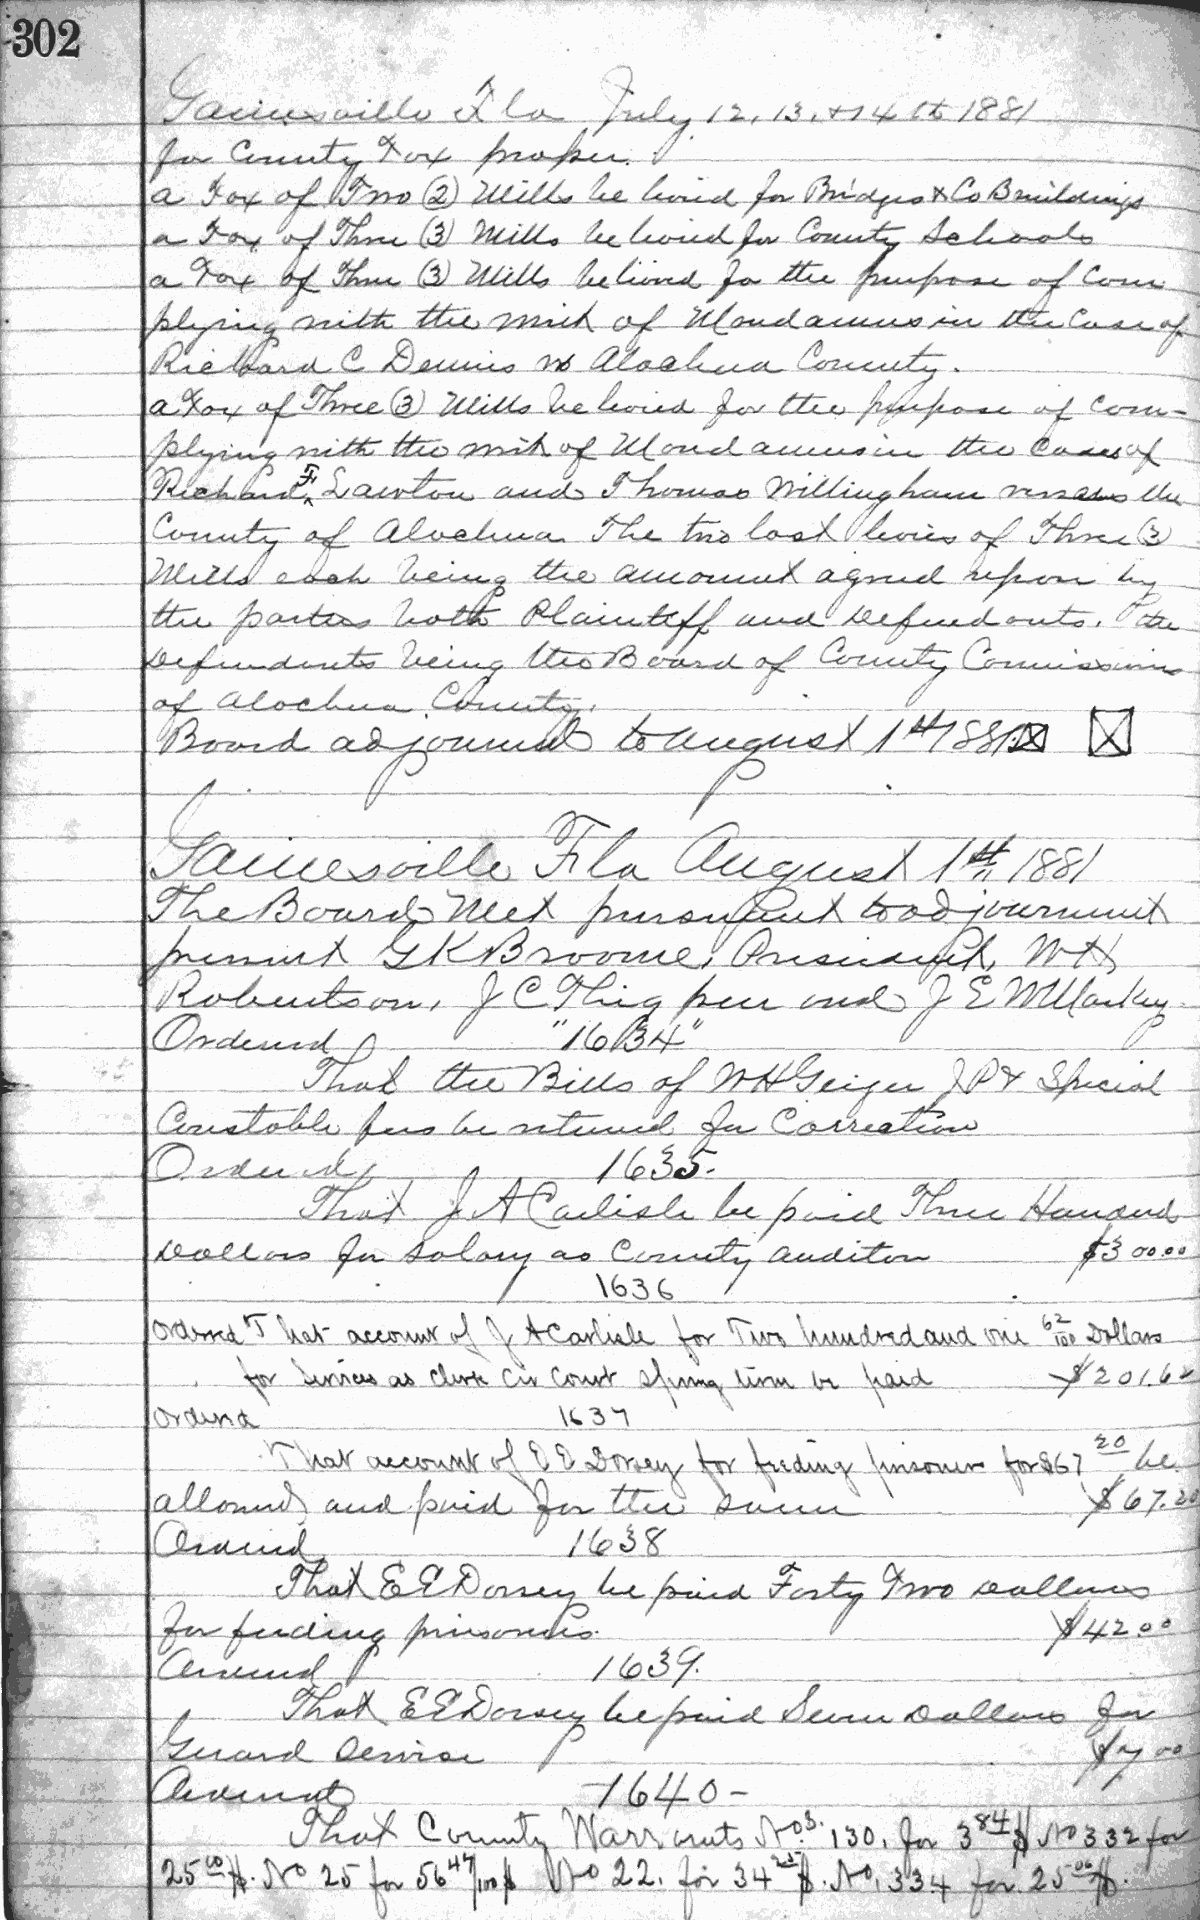 302
Gainesville Fla July 12, 13, & 14th 1881
for County Tax proper.
a Tax of Two (2) Mills be levied for Bridges & Co Buildings
a Tax of Three (3) Mills be levied for County Schools
a Tax of Three (3) Mills be levied for the purpose of Com
plying with the writ of Mandamus in the Case of
Richard C Dennis vs Alachua County.
a Tax of Three (3) Mills be levied for the purpose of com-
plying with the writ of Mandamus in the Cases of
Richard F. Lawton and Thomas Willingham versus the
County of Alachua. The two last levies of Three (3)
Mills each being the amount agreed upon by
the parties both Plaintiff and Defendants. the
Defendants being the Board of County Comissioners
of Alachua County.
Board adjourned to August 1st 1881
Gainesville Fla August 1st 1881
The Board Met pursuant to adjournment
present G K Broome, President, W H
Robertson, J C Thigpen and J E
Ordered "1634"
That the Bills of W H Geiger J P & Special
Constable fees be returned for Correction
Ordered 1635.
That J A Carlisle be paid Three Hundred
Dollars for Salary as County auditor $300.00
1636
Ordered That account of J A Carlisle for Two hundred and one 62/100 Dollars
for Services as clerk Cir Court Spring term be paid $201.62
Ordered 1637
That account of E E Dorsey for feeding prisoners for $67 20 be
allowed and paid for the same $67.20
Ordered 1638
That E E Dorsey be paid Forty Two Dollars
for feeding prisoners. $42.00
Ordered 1639.
That E E Dorsey be paid Seven Dollars for
Guard Service $7.00
Ordered -1640-
That County Warrants Nos. 130, for 3 84 $ No 332 for
25 00 $. No 25 for 56 47/100 $ No 22. for 34 25 $. No. 334 for 25 00 $.